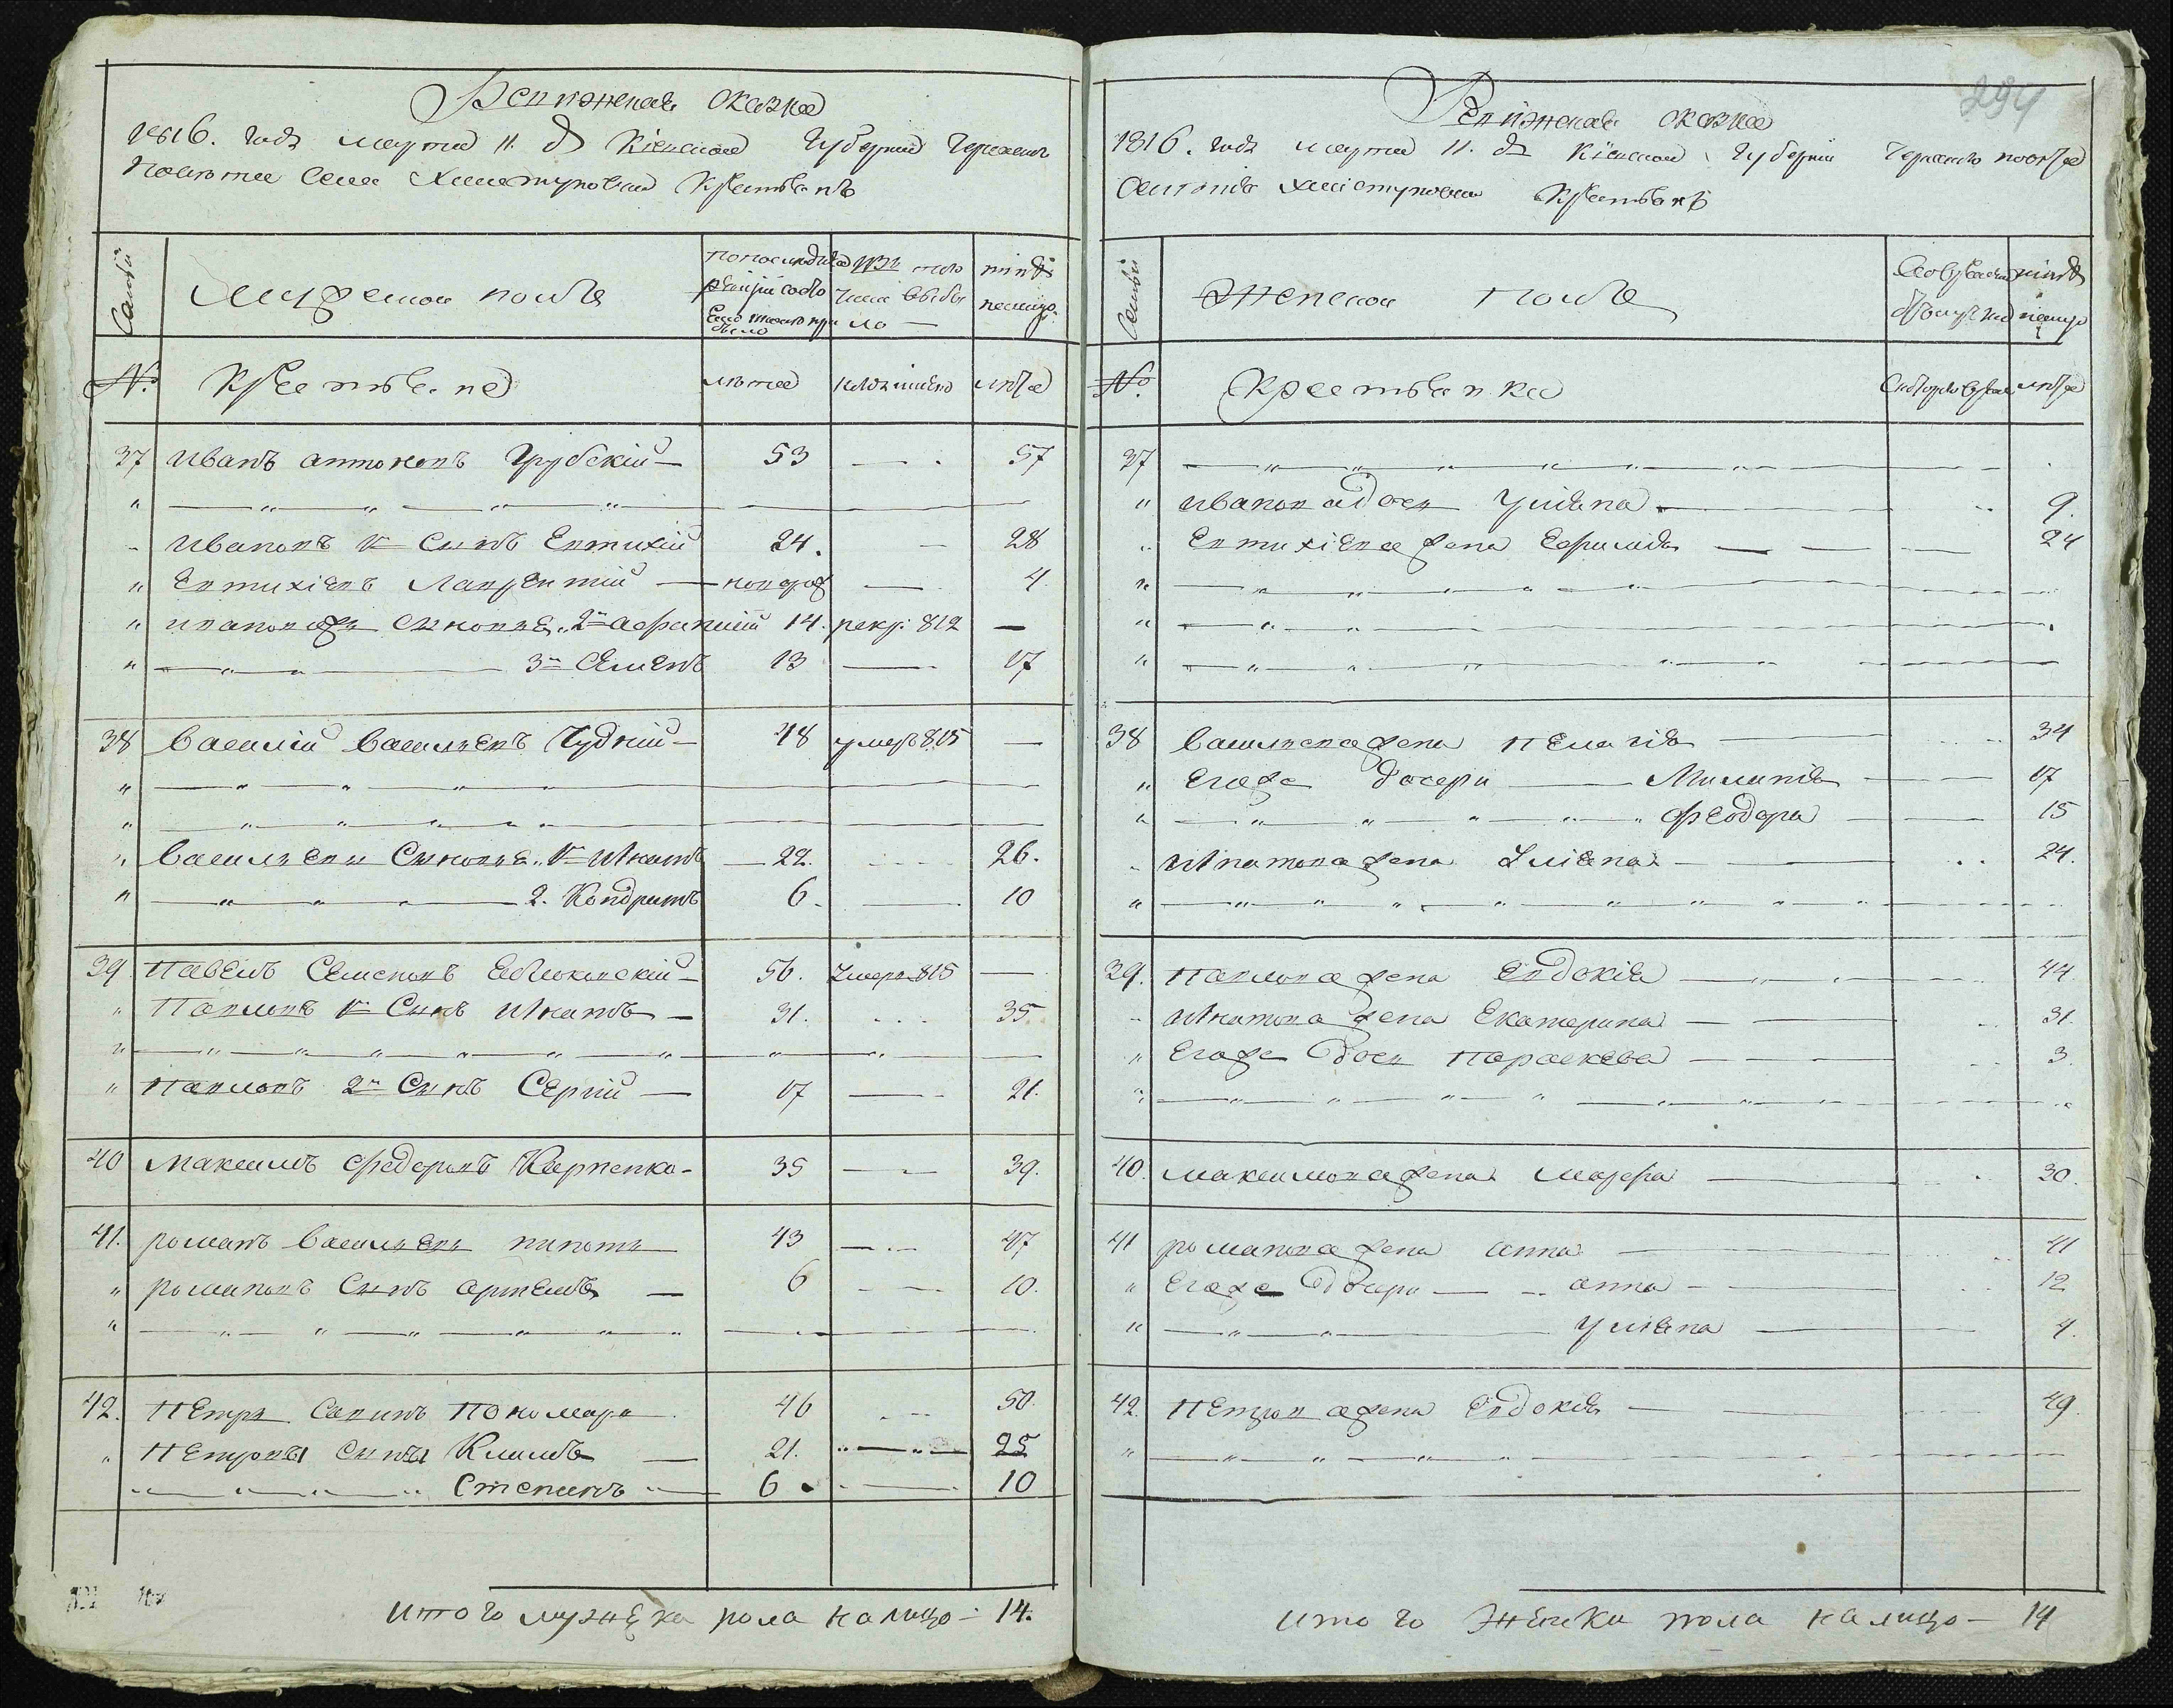 Ревижская сказка
1816. года марта 11. д Кіевской Губерніи Черкаского
Повета села Хлистуновки Крестьянъ
Семьи
Мужеской полъ
По последней ревизіи состояло и после того прибыло
Изъ того числа выбыло
ныне налицо
№.
Крестьяне
лета
когда именно
лета
37 Иванъ антоновъ Грубскій — 53 — 57
Ивановъ 1й Сынъ Евтихій 24. — 28
" Евтихіевъ Лаврентій — новорож — 4
" Ивановы ж Сыновья 2й афанасий 14. рекр: 812 —
" — " — " — 3й Семенъ 13 — 17
38 Василій Васильевъ Чудній — 48 умеръ 815 —
" Васильевы Сыновья 1й Игнатъ — 22. 26.
" — " — " — 2. Кондратъ 6. — 10
39 Павелъ Семеновъ Яблоковскій — 56. Умеръ 815 —
" Павловъ 1й Сынъ Игнатъ — 31. 35
" Павловъ 2й Сынъ Сергій — 17 — 21.
40 Максимъ Федоровъ Карпенко - 35 — 39.
41. Романъ Васильевъ 43 — 47
" Романовъ Сынъ Артемъ — 6 — 10.
42. Петръ Савинъ Пономарь 46 50.
" Петровы Сыны Климъ — 21. " — " — 25
" — " — " Степанъ — 6 . — 10
Итого мужеска пола налицо — 14.
294
Ревижская сказка
1816. года марта 11. д Кіевской Губерніи Черкаского повета
Селенія Хлистуновки Крестьянъ
Семьи
Женской полъ
Во временной отлучке
ныне налицо
№.
Крестьянки
Съ которого времени
лета
37
" Иванова дочь Уліяна — 9.
" Евтихіева жена Ефимія — 24
38 Васильева жена Пелагія — 34
" Его же дочери — Миланія — 17
" — " — " — Феодора — 15
Игнатова жена Уліяна — 24.
39. Павлова жена Евдокія — 44
Игнатова жена Екатерина — 31.
" Его же дочь Параскева — 3.
40. Максимова жена Марфа — 30.
41 Романова жена анна — 41
" Его же дочери — анна — 12
" — " — " — Уліяна — 4.
42. Петрова жена Евдокія — 49.
Итого Женска пола налицо — 14